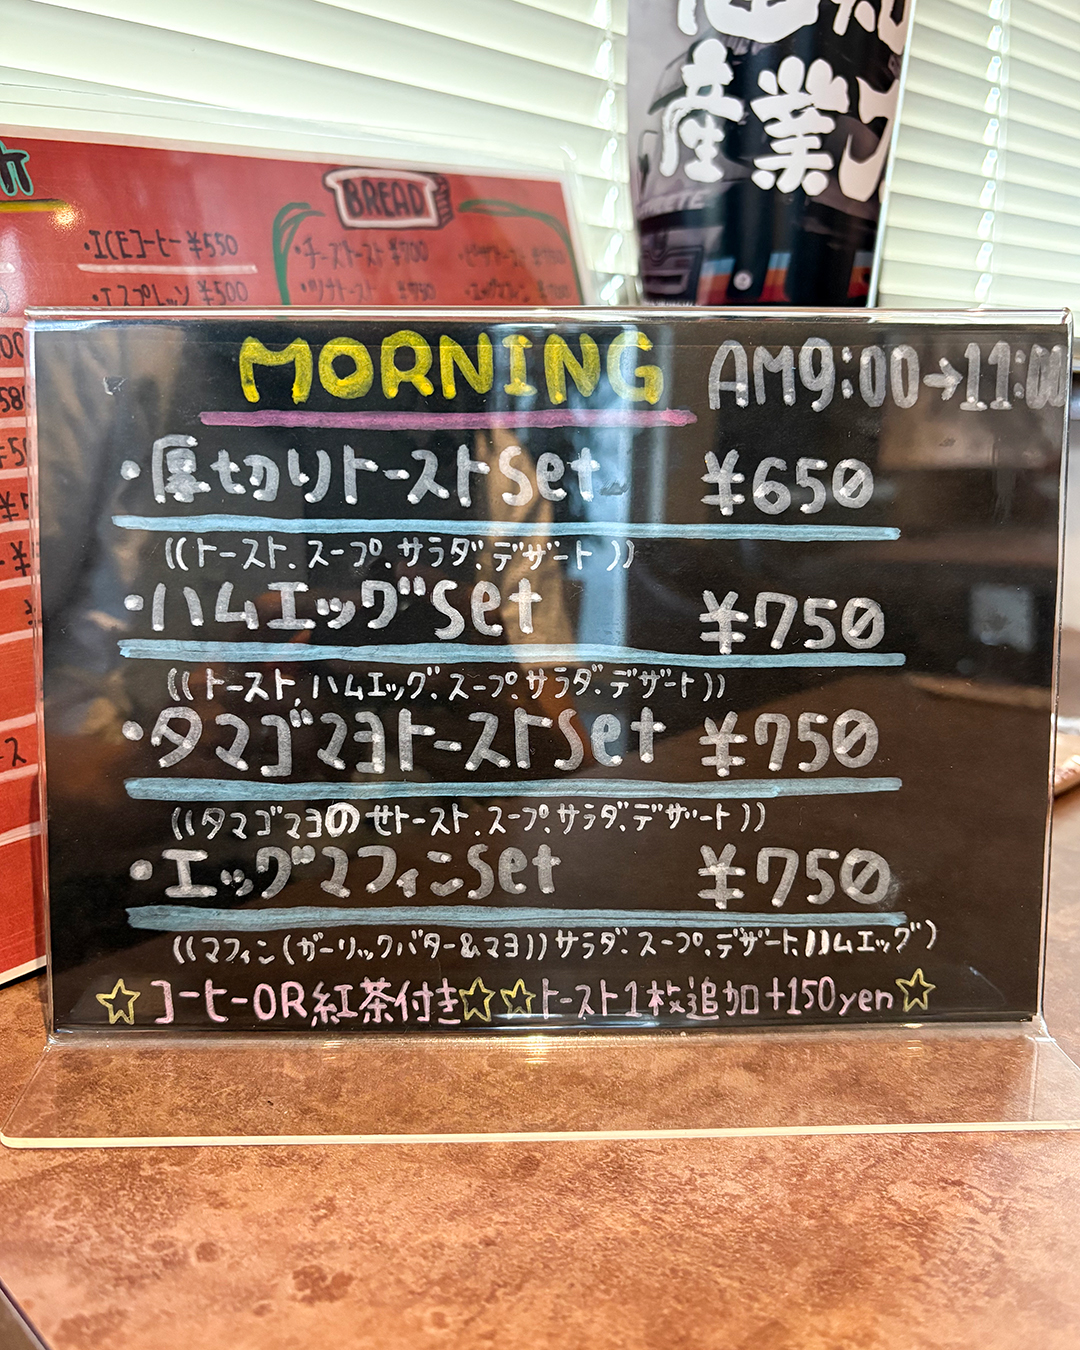 産業
BREAD
・ICEコーヒー ¥550
・チーズトースト ¥700
・エスプレッソ ¥500
・ツナトースト ¥750
MORNING AM9:00→11:00
・厚切りトーストSet ¥650
((トースト、スープ、サラダ、デザート))
・ハムエッグSet ¥750
((トースト、ハムエッグ、スープ、サラダ、デザート))
・タマゴマヨトーストSet ¥750
((タマゴマヨのせトースト、スープ、サラダ、デザート))
・エッグマフィンSet ¥750
((マフィン(ガーリックバター&マヨ))サラダ、スープ、デザート、ハムエッグ)
☆コーヒーOR紅茶付き☆☆トースト1枚追加+150yen☆